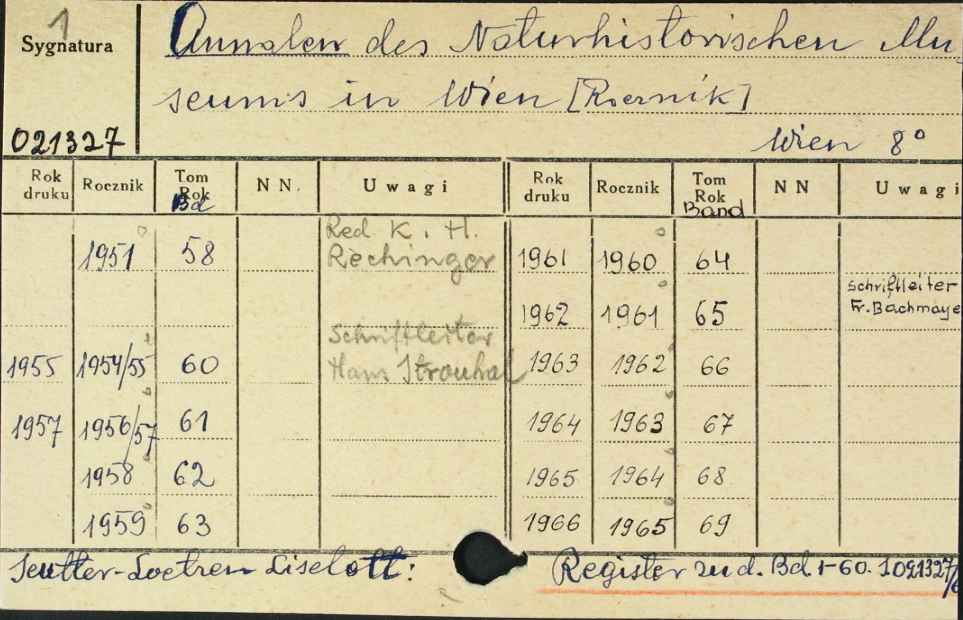 1
Sygnatura
021327
Annalen des Naturhistorischen Mu-
seums in Wien [Rocznik]
Wien 8°
Rok druku Rocznik Tom Rok Bd NN. Uwagi Rok druku Rocznik Tom Rok Band NN Uwagi
1951 58 Red K. H. Rechinger 1961 1960 64
1962 1961 65 Schriftleiter Fr. Bachmaye
1955 1954/55 60 Schriftleiter Hans Strouhal 1963 1962 66
1957 1956/57 61 1964 1963 67
1958 62 1965 1964 68
1959 63 1966 1965 69
Liselott:
Register zu d. Bd. 1-60.